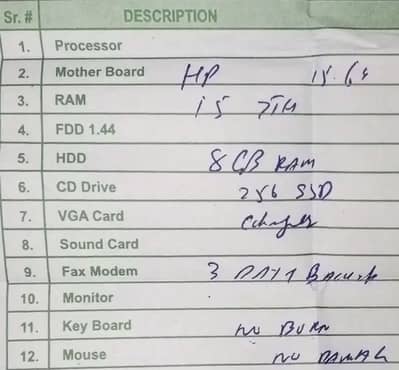 Sr. # DESCRIPTION
1. Processor
2. Mother Board HP 15.6"
3. RAM i5 7TH
4. FDD 1.44
5. HDD 8 GB RAM
6. CD Drive 256 SSD
7. VGA Card
8. Sound Card
9. Fax Modem 3 DAYS BACKUP
10. Monitor
11. Key Board NO BURN
12. Mouse NO DAMAG